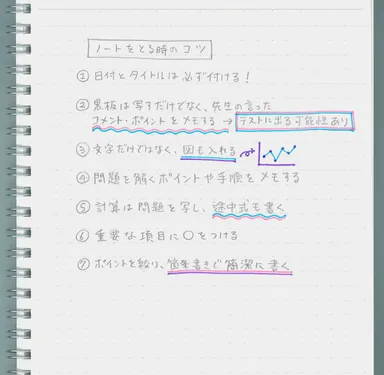 ノートをとる時のコツ
① 日付とタイトルは必ず付ける!
② 黒板は写すだけでなく、先生の言った
コメント・ポイントをメモする → テストに出る可能性あり
③ 文字だけではなく、図も入れる
④ 問題を解くポイントや手順をメモする
⑤ 計算は問題を写し、途中式も書く
⑥ 重要な項目に〇をつける
⑦ ポイントを絞り、箇条書きで簡潔に書く